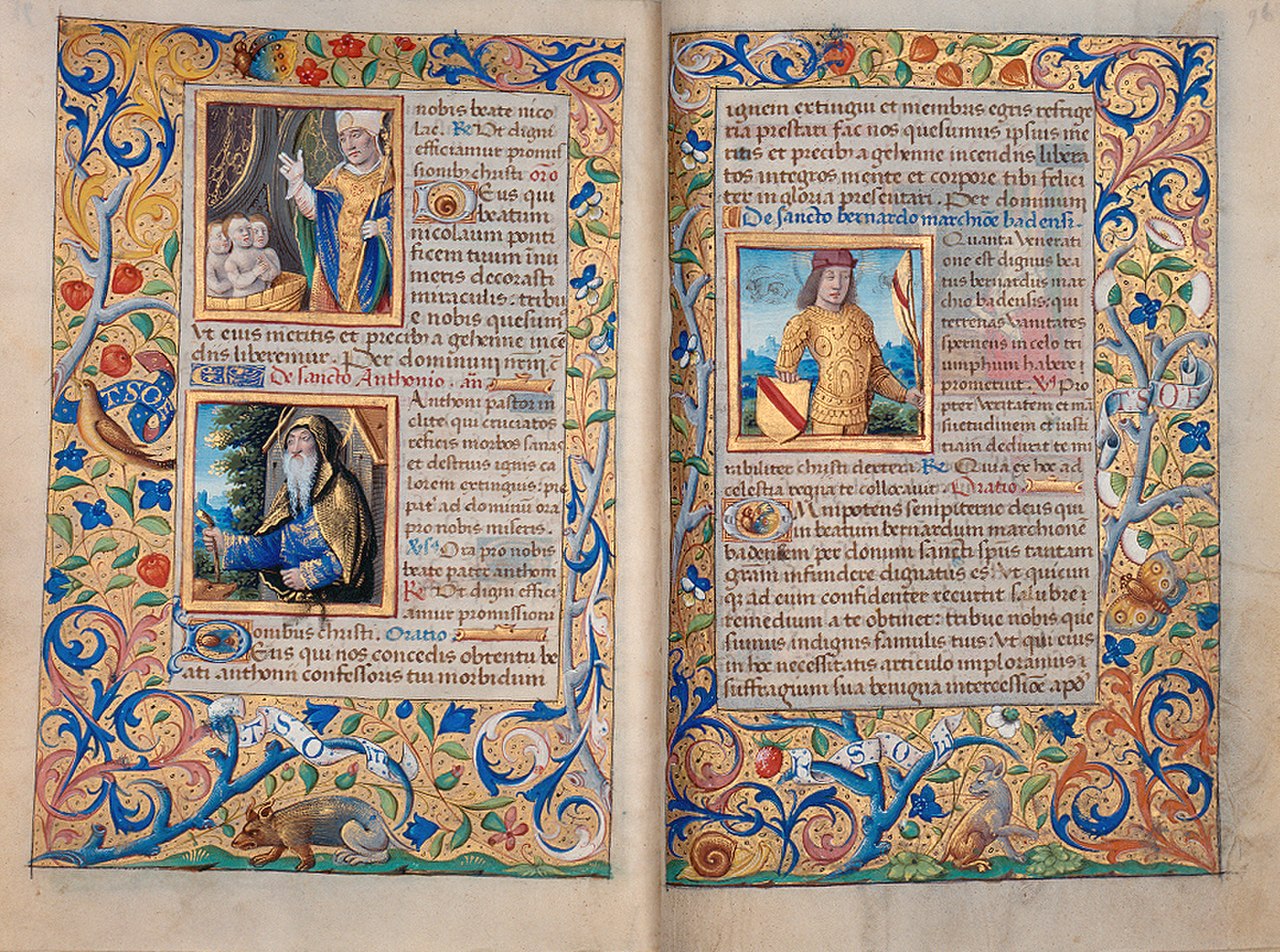 nobis beate nico
lae. Rx Ut digni
efficiamur promis
sionib9 christi oro
Deus qui
beatum
nicolaum ponti
ficem tuum innu
meris decorasti
miraculis: tribu
e nobis quesum9
ut eius meritis et precib9 a gehenne ince
diis liberemur. Per dominum nrm
De sancto Anthonio. an
Anthoni pastor in
clite qui cruciatos
reficis morbos sanas
et destruis ignis ca
lorem extinguis: pie
pater ad dominu ora
pro nobis miseris.
Ora pro nobis
beate pater anthoni
Rx Ut digni effici
amur promissioni
onibus christi. Oratio
Deus qui nos concedis obtentu be
ati anthonii confessoris tui morbidum
TSOE
TSOE
ignem extingui et membris egris refrige
ria prestari fac nos quesumus ipsius me
ritis et precib9 a gehenne incendiis libera
tos integros mente et corpore tibi felici
ter in gloria presentari. Per dominum
De sancto bernardo marchioe badensi.
Quanta venerati
one est dignus bea
tus bernardus mar
chio badensis: qui
terrenas vanitates
spernens in celo tri
umphum habere
prometuit. Pro
pter veritatem et ma
suetudinem et iusti
tiam deduxit te mi
rabiliter christi dextera. Rx Quia ex hoc ad
celestia regna te collocavit. Oratio
Omnipotens sempiterne deus qui
in beatum bernardum marchione
badensem per donum sancti sps tantam
gram infundere dignatus es: ut quicun
q3 ad eum confidenter recurrit salubre
remedium a te obtinet: tribue nobis que
sumus indignis famulis tuis: ut qui eius
in hoc necessitatis articulo imploramus
suffragium sua benigna intercessioe apd
TSOE
TSOE